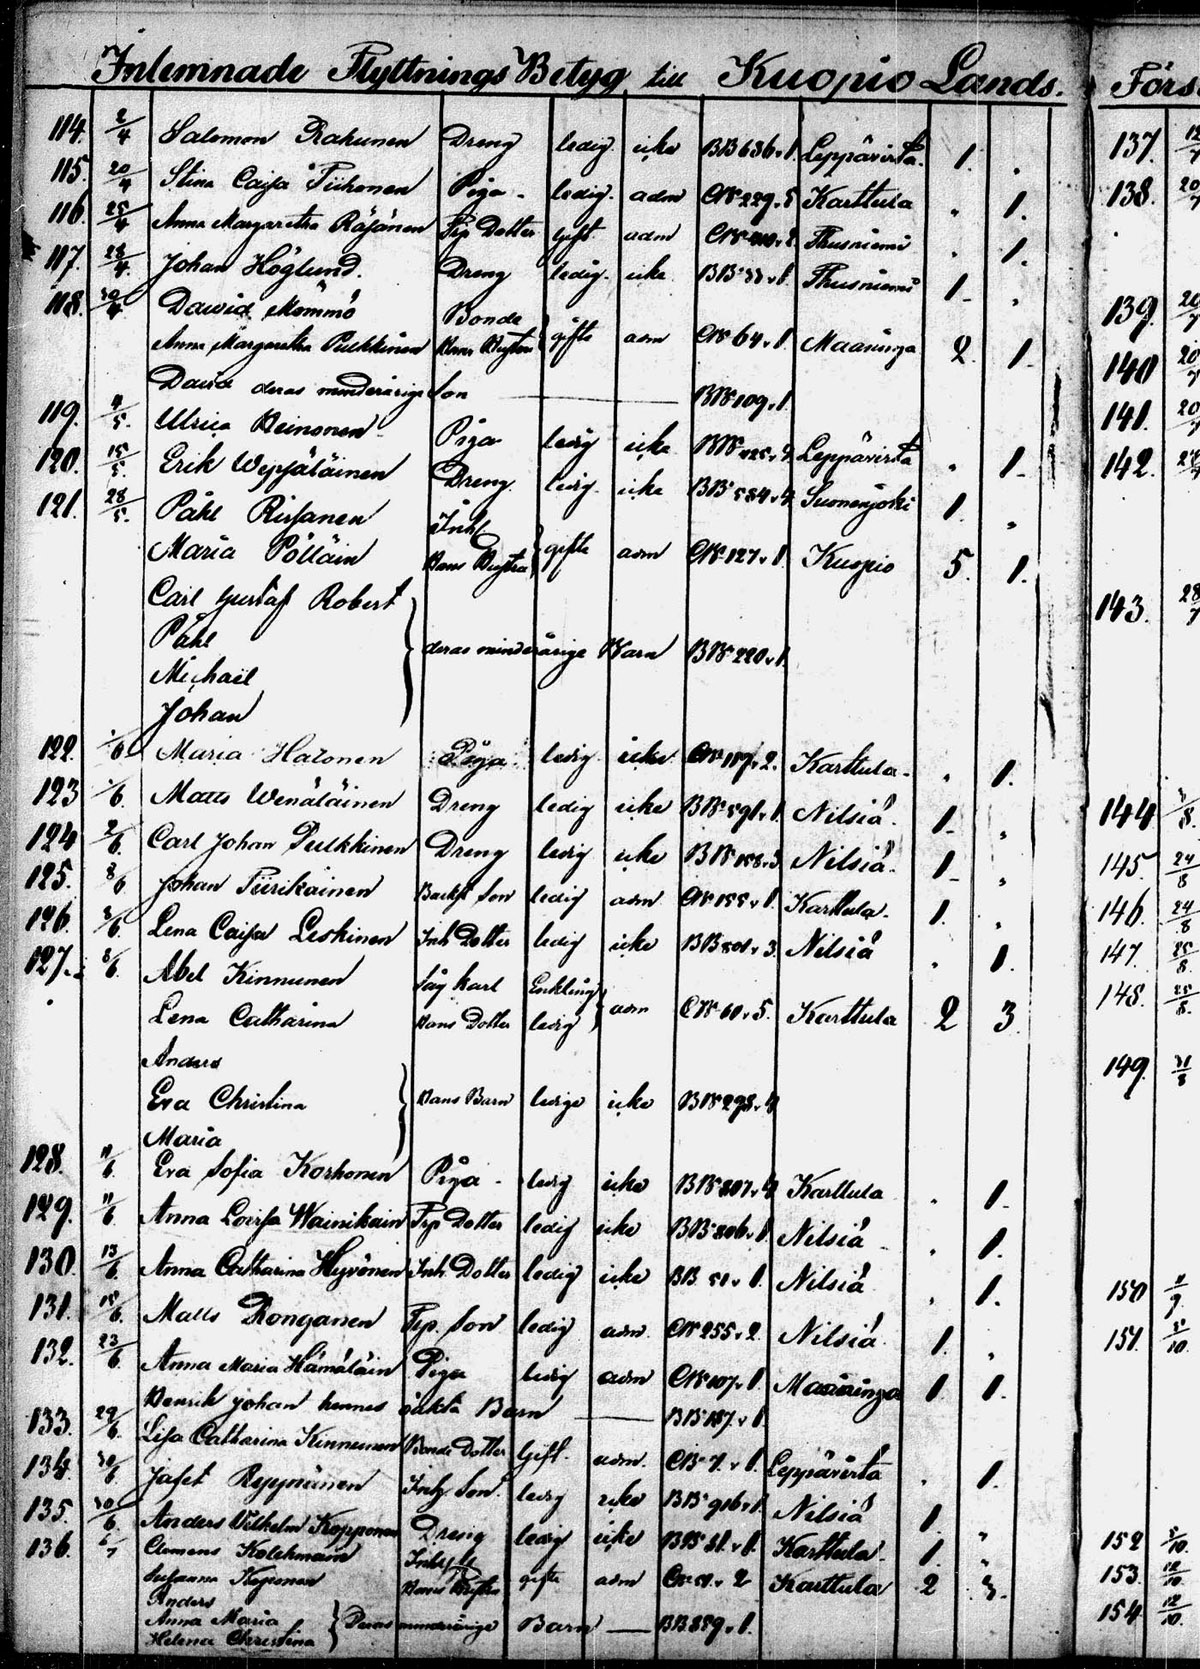 Inlemnade Flyttnings Betyg till Kuopio Lands.
114. 2/4 Salomon Rahunen Dreng ledig icke BB 636 v. 1. Leppävirta. 1.
115. 20/4 Stina Caisa Tiihonen Piga ledig. adm CB 229 v. 5 Karttula 1.
116. 25/4 Anna Margaretha Räsänen Trp Dotter gift. adm Thusniemi 1.
117. 28/4 Johan Höglund. Dreng ledig. icke BB 33 v. 1. Thusniemi 1.
118. 30/4 Dawid Mömmö Bonde
Anna Margaretha Pulkkinen Hans Hustru gifta adm CB 64 v. 1. Maaninga 2 1.
David deras minderårige Son BB 109 v. 1.
119. 4/5. Ulrica Heinonen Piga ledig icke Leppävirta 1.
120. 15/5. Erik Wepsäläinen Dreng ledig. icke BB 584 v. 4. Suonenjoki 1.
121. 28/5. Påhl Rissanen Inh
Maria Pölläin Hans Hustru gifta adm CB 127 v. 1. Kuopio 5. 1.
Carl Gustaf Robert
Påhl deras minderårige Barn BB 220 v. 1.
Michaël
Johan
122. /6 Maria Halonen Piga ledig icke CB 187 v. 2. Karttula. 1.
123 /6. Matts Wenäläinen Dreng ledig icke BB 591 v. 1. Nilsiä. 1.
124 2/6. Carl Johan Pulkkinen Dreng ledig icke BB 188 v. 3. Nilsiä. 1.
125. 8/6 Johan Tiirikainen Backst Son ledig adm CB 155 v. 1. Karttula. 1.
126. 8/6. Lena Caisa Leskinen Inh Dotter ledig icke BB 801 v. 3. Nilsiä 1.
127. 8/6. Abel Kinnunen Såg karl Enkling
Lena Catharina Hans Dotter ledig adm CB 60 v. 5. Karttula 2 3.
Anders
Eva Christina Hans Barn ledige icke BB 298 v. 4
Maria
128. 11/6. Eva Sofia Korhonen Piga ledig icke BB 807 v. 4 Karttula 1.
129. 11/6. Anna Lovisa Wainikain Trp Dotter ledig icke BB 806 v. 1. Nilsiä 1.
130. 13/6. Anna Catharina Hyvönen Inh Dotter ledig icke BB 51 v. 1. Nilsiä 1.
131. 15/6. Matts Ronganen Trp. Son ledig adm. CB 255 v. 2. Nilsiä. 1.
132. 23/6 Anna Maria Hämäläin Piga ledig adm CB 107 v. 1. Maaninga 1. 1.
Henrik Johan hennes oäkta Barn BB 187 v. 1.
133. 29/6. Lisa Catharina Kinnunen Bonde Dotter Gift. adm. CB 7. v. 1. Leppävirta 1.
134. 30/6 Jafet Ryynänen Inh Son. ledig icke BB 916 v. 1. Nilsiä 1.
135. 30/6. Anders Wilhelm Kopponen Dreng ledig icke BB 81 v. 1. Karttula. 1.
136. /7 Clemens Kolehmain Inhys
Susanna Koponen Hans Hustru gifta adm CB 51 v. 2 Karttula 2 3.
Anders
Anna Maria Deras minderårige Barn BB 859 v. 1.
Helena Christina
Förs
137. 12/7
138. 20/7
139. 20/7
140 20/7
141. 20/7
142.
143. 28/7
144 /8.
145. 24/8
146. 24/8
147. 25/8.
148. 25/8.
149. 31/8
150 11/9
151. 5/10.
152 5/10.
153. 12/10.
154. 12/10.